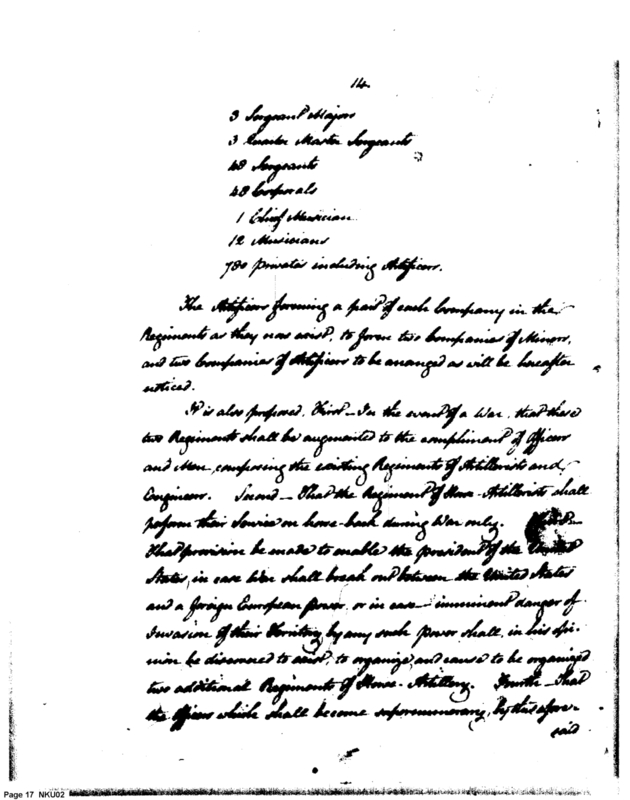 14
3 Sergeant Majors
3 Quarter Master Sergeants
48 Sergeants
48 Corporals
1 Chief Musician
12 Musicians
780 Privates including Artificers.
The Artificers forming a part of each Company in the
Regiments as they now exist, to form two Companies of Miners,
and two Companies of Artificers to be arranged as will be hereafter
noticed.
It is also proposed. First – In the event of a War, that these
two Regiments shall be augmented to the compliment of Officers
and Men, composing the existing Regiments of Artillerists and
Engineers. Second – That the Regiment of Horse-Artillerists shall
perform their Service on horse-back during War only. Third –
That provision be made to enable the President of the United
States, in case War shall break out between the United States
and a foreign European power, or in case imminent danger of
Invasion of their Territory by any such power shall, in his opi-
nion be discovered to exist, to organize, and cause to be organized
two additional Regiments of Horse-Artillery. Fourth – That
the Officers which shall become supernumerary, by this afore-
said
Page 17 NKU02